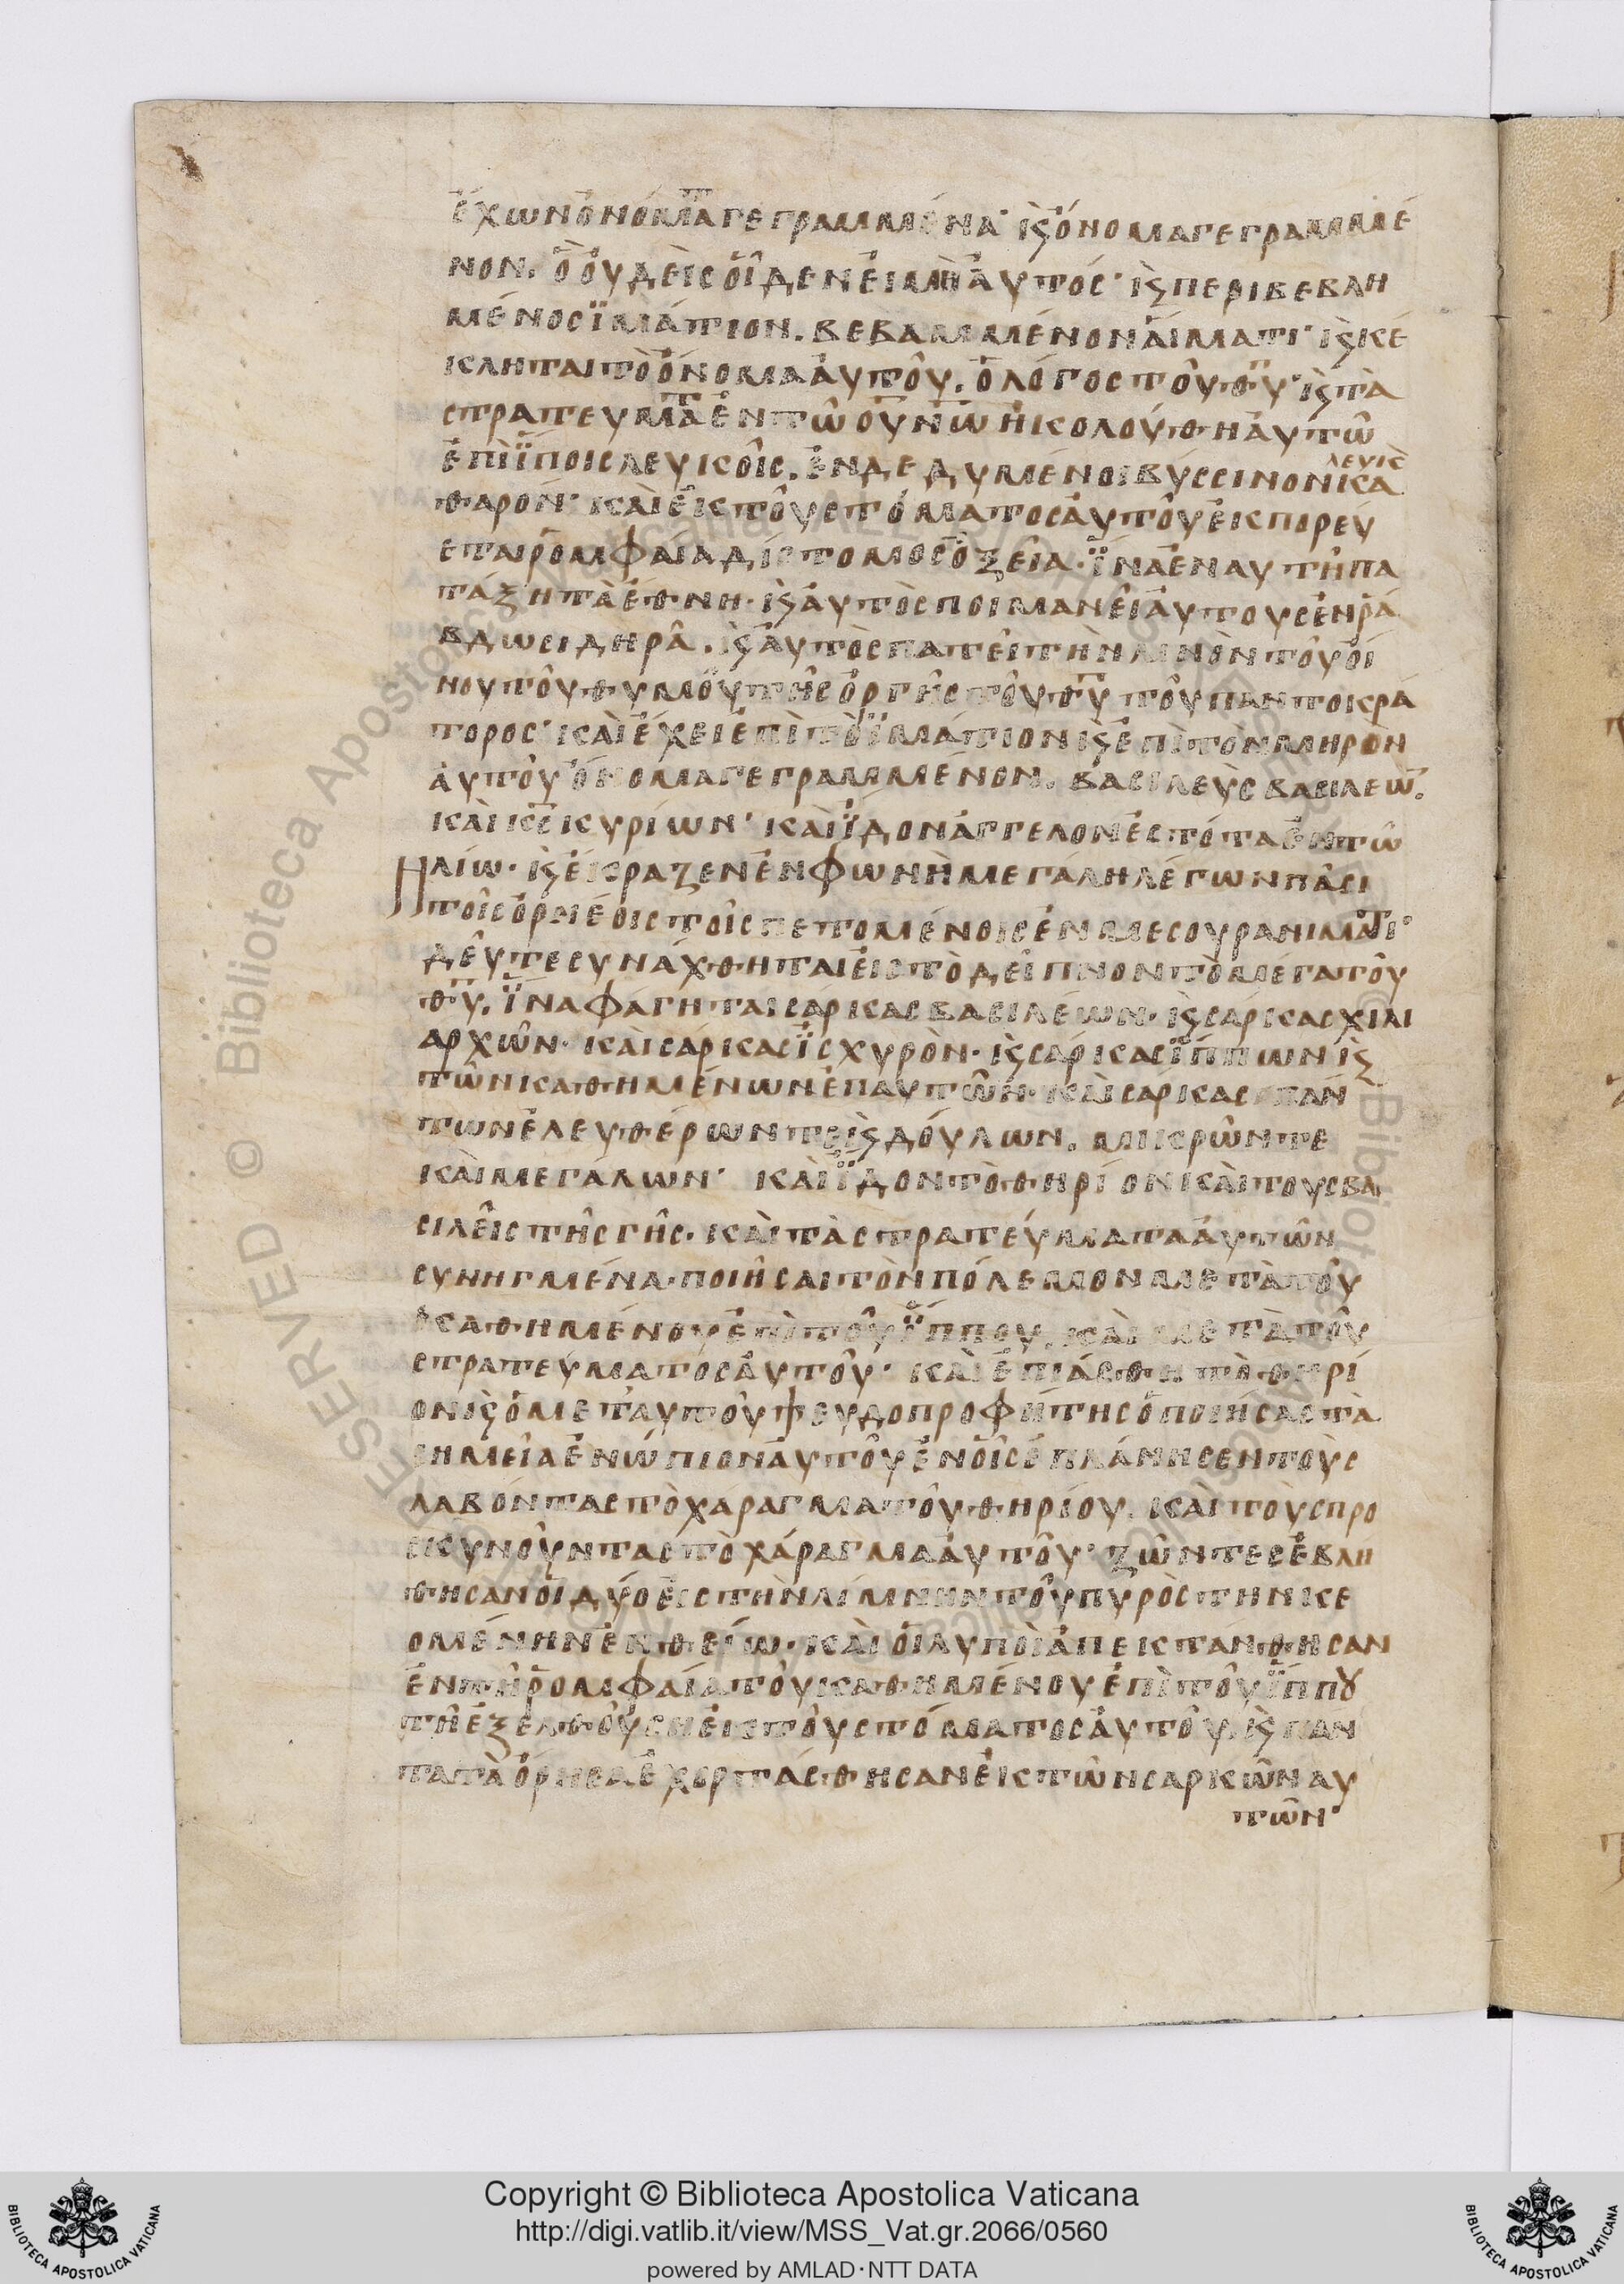 ἔχων ὀνόματα γεγραμμένα· ϗ ὄνομα γεγραμμέ
νον. ὃ οὐδεὶς οἶδεν εἰ μὴ αὐτός· ϗ περιβεβλη
μένος ϊμάτιον. βεβαμμένον αἵματι· ϗ κέ
κληται τὸ ὄνομα αὐτοῦ. ὁ λόγος τοῦ θυ· ϗ τὰ
στρατευμτα ἐν τῶ ουνω ἠκολούθη αὐτῶ
ἐπι ϊποις λευκοῖς. ἐνδεδυμένοι βύσσινον λευκὸ κα
θαρόν· καὶ ἐκ τοῦ στόματος αὐτοῦ ἐκπορεύ
εται ῥομφαία δίστομος ὀξεῖα· ϊνα ἐν αυτῆ πα
τάξη τὰ ἔθνη· ϗ αὐτὸς ποιμανεῖ αὐτους ἐν ῥά
βδω σιδηρᾶ. ϗ αὐτὸς πατεῖ τὴν ληνὸν τοῦ οἴ
νου τοῦ θυμοῦ τῆς ὀργῆς τοῦ θυ τοῦ παντοκρά
τορος· καὶ ἔχει ἐπὶ τὸ ϊμάτιον ϗ ἐπὶ τὸν μηρον
αὐτοῦ ὄνομα γεγραμμένον. βασιλεὺς βασιλεω.
καὶ κς κυρίων· καὶ ϊδον ἄγγελον ἑστότα ἐν τῶ
Ηλίω· ϗ ἔκραζεν ἐν φωνὴ μεγάλη λέγων πᾶσι
τοῖς ὀρνέοις τοῖς πετομένοις ἐν μεσουρανιματι·
δεῦτε συνάχθηται εἰς τὸ δεῖπνον τὸ μέγα τοῦ
θυ. ϊνα φάγηται σάρκας βασιλέων· ϗ σάρκας χιλι
αρχῶν· καὶ σάρκας ϊσχυρὸν· ϗ σάρκας ϊππων ϗ
τῶν καθημένων ἐπ αυτῶν· καὶ σάρκας παν
των ἐλευθέρων τε ϗ δούλων. μικρῶν τε
καὶ μεγάλων· καὶ ϊδον τὸ θηρίον καὶ τους βα
σιλεῖς τῆς γῆς· καὶ τὰ στρατεύματα αὐτῶν
συνηγμένα· ποιῆσαι τὸν πόλεμον μετὰ τοῦ
καθημένου ἐπὶ τοῦ ϊππου. καὶ μετὰ τοῦ
στρατευματος αὐτοῦ· καὶ ἐπιάσθη τὸ θηρί
ον ϗ ὁ μετ αυτοῦ ψευδοπροφήτης ὁ ποιήσας τὰ
σημεῖα ἐνώπιον αὐτοῦ ἐν οἷς ἐπλάνησεν τοὺς
λαβόντας τὸ χάραγμα τοῦ θηρίου. καὶ τοὺς προ
σκυνοῦντας τὸ χάραγμα αὐτοῦ· ζῶντες ἐβλη
θησαν οἱ δύο εἰς τὴν λίμνην τοῦ πυρὸς τὴν κε
ομένην ἐν θείω· καὶ οἱ λυποὶ ἀπεκτάνθησαν
ἐν τῆ ῥομφαία τοῦ καθημένου ἐπὶ τοῦ ϊππου
τῆ ἐξελθούση ἐκ τοῦ στόματος αὐτοῦ. ϗ παν
τα τὰ ὄρνεα ἐχορτάσθησαν ἐκ τῶν σαρκῶν αυ
τῶν·
SERVED © Biblioteca Apostolica Vaticana
Copyright © Biblioteca Apostolica Vaticana
http://digi.vatlib.it/view/MSS_Vat.gr.2066/0560
powered by AMLAD·NTT DATA
BIBLIOTECA APOSTOLICA VATICANA
BIBLIOTECA APOSTOLICA VATICANA